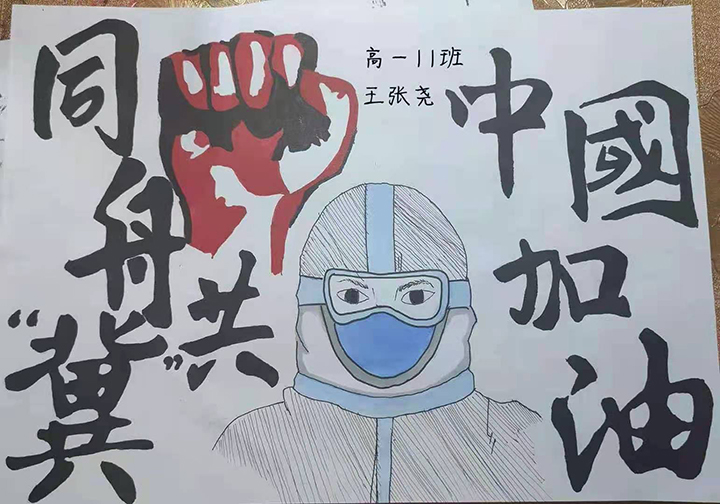 同舟共"冀"
高一11班
王张尧
中國加油